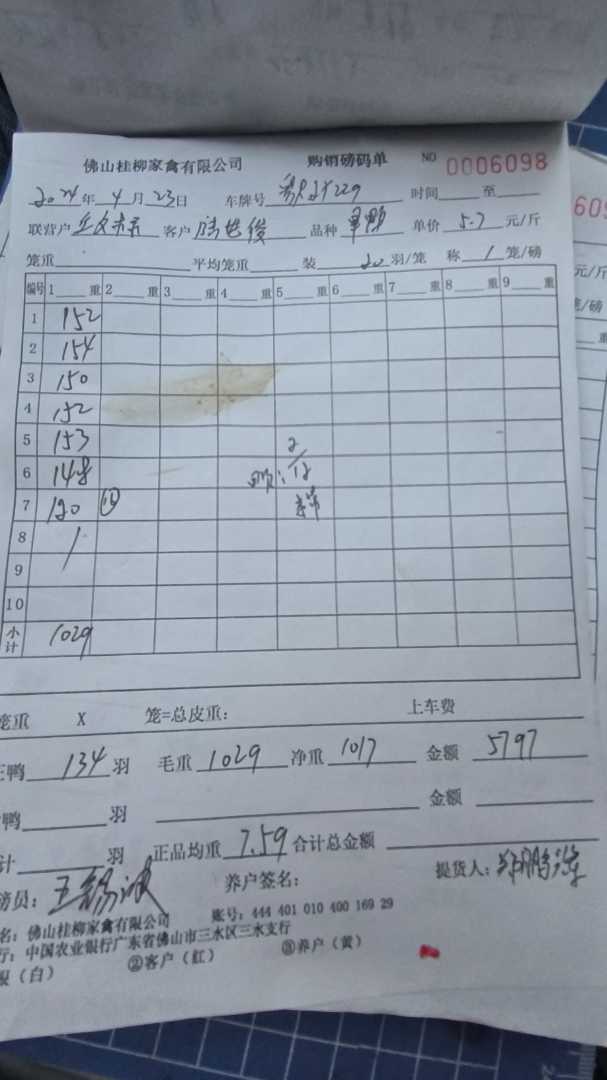 佛山桂柳家禽有限公司 购销磅码单 NO 0006098
2024年4月23日 车牌号 229 时间 至
联营户 客户 品种 单价 5.7 元/斤
笼重 平均笼重 装 20 羽/笼 称 1 笼/磅
编号 1 重 2 重 3 重 4 重 5 重 6 重 7 重 8 重 9 重
1 152
2 154
3 150
4 152
5 153 2
6 148 12
7 120
8
9
10
小计 1029
笼重 X 笼=总皮重: 上车费
鸭 134 羽 毛重 1029 净重 1017 金额 5797
鸭 羽 金额
计 羽 正品均重 7.59 合计总金额
磅员: 养户签名: 提货人:
名: 佛山桂柳家禽有限公司 账号: 444 401 010 400 169 29
行: 中国农业银行广东省佛山市三水区三水支行
(白) ②客户(红) ③养户(黄)
609
元/斤
笼/磅
重